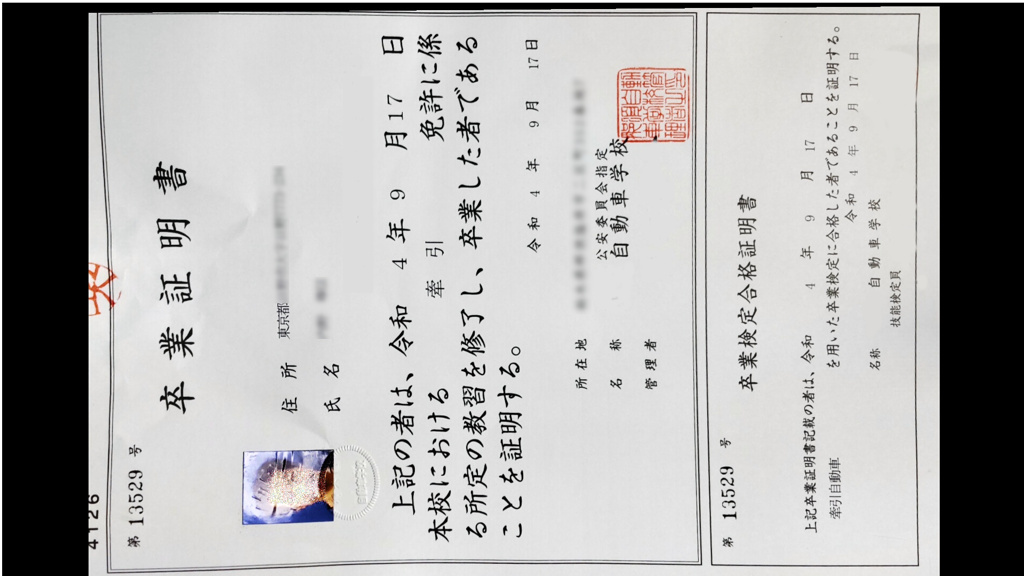 4126
第 13529 号
卒業証明書
住所 東京都
氏名
上記の者は、令和 4 年 9 月 17 日
本校における 牽引 免許に係
る所定の教習を修了し、卒業した者である
ことを証明する。
令和 4 年 9 月 17 日
所在地
公安委員会指定
名称 自動車学校
管理者
第 13529 号
卒業検定合格証明書
上記卒業証明書記載の者は、令和 4 年 9 月 17 日
牽引自動車 を用いた卒業検定に合格した者であることを証明する。
令和 4 年 9 月 17 日
名称 自動車学校
技能検定員